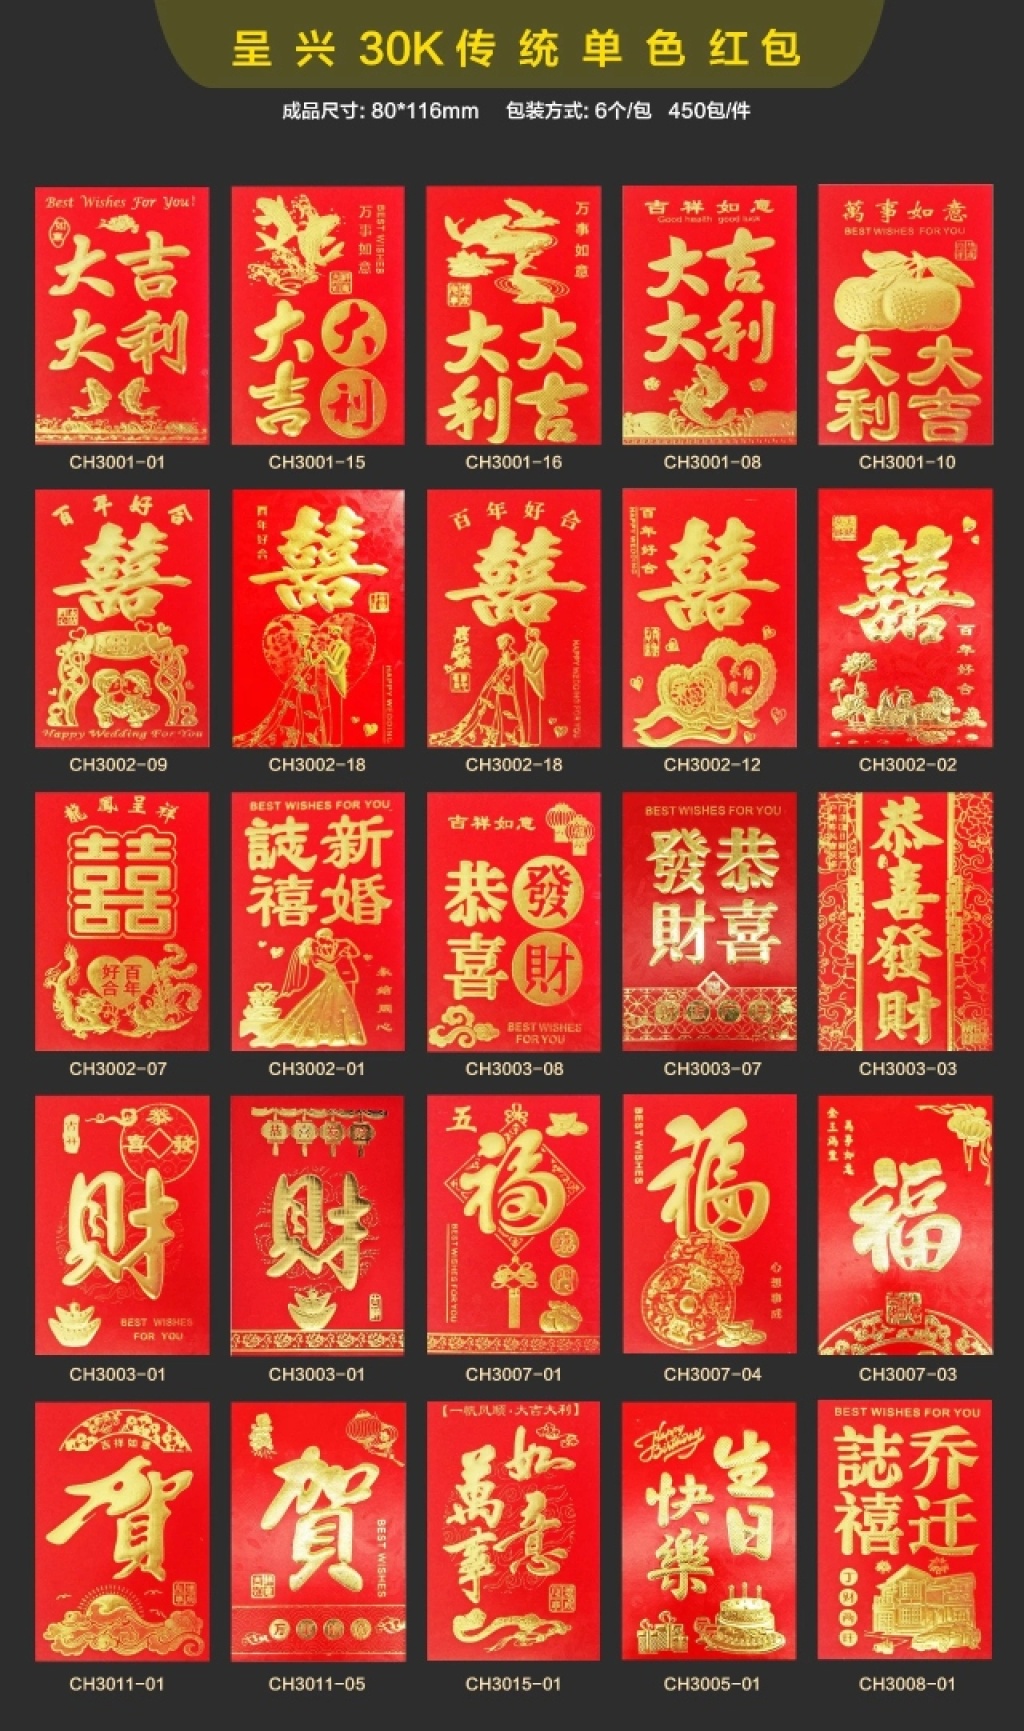 呈兴30K传统单色红包
成品尺寸: 80*116mm 包装方式: 6个/包 450包/件
Best Wishes For You!
大吉
大利
CH3001-01
万事如意
BEST WISHES
大吉
大利
CH3001-15
万事如意
大大
利吉
CH3001-16
吉祥如意
Good health good luck
大吉
大利
CH3001-08
萬事如意
BEST WISHES FOR YOU
大大
利吉
CH3001-10
百年好合
囍
Happy Wedding For You
CH3002-09
百年好合
囍
HAPPY WEDDING
CH3002-18
百年好合
囍
HAPPY WEDDING FOR YOU
CH3002-18
百年好合
HAPPY WEDDING
囍
永结同心
CH3002-12
囍
百年好合
CH3002-02
龍鳳呈祥
囍
好百
合年
CH3002-07
BEST WISHES FOR YOU
誌新
禧婚
永结同心
CH3002-01
吉祥如意
恭發
喜財
BEST WISHES
FOR YOU
CH3003-08
BEST WISHES FOR YOU
發恭
財喜
CH3003-07
恭喜發財
CH3003-03
恭
喜發
財
BEST WISHES
FOR YOU
CH3003-01
財
CH3003-01
五
福
BEST WISHES FOR YOU
CH3007-01
BEST WISHES
福
心想事成
CH3007-04
金玉滿堂
萬事如意
福
CH3007-03
吉祥如意
賀
CH3011-01
賀
BEST WISHES
万
CH3011-05
【一帆风顺·大吉大利】
萬事
如意
CH3015-01
Happy
Birthday
生日
快樂
CH3005-01
BEST WISHES FOR YOU
誌乔
禧迁
丁財两旺
CH3008-01